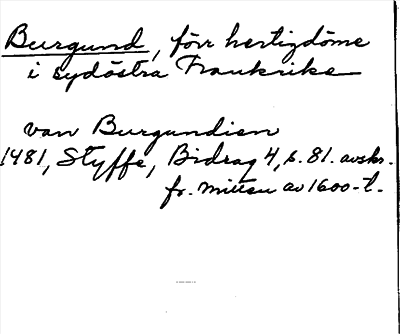 Burgund, förr hertigdöme
i sydöstra Frankrike
van Burgundien
1481, Styffe, Bidrag 4, s. 81. avskr.
fr. mitten av 1600-t.